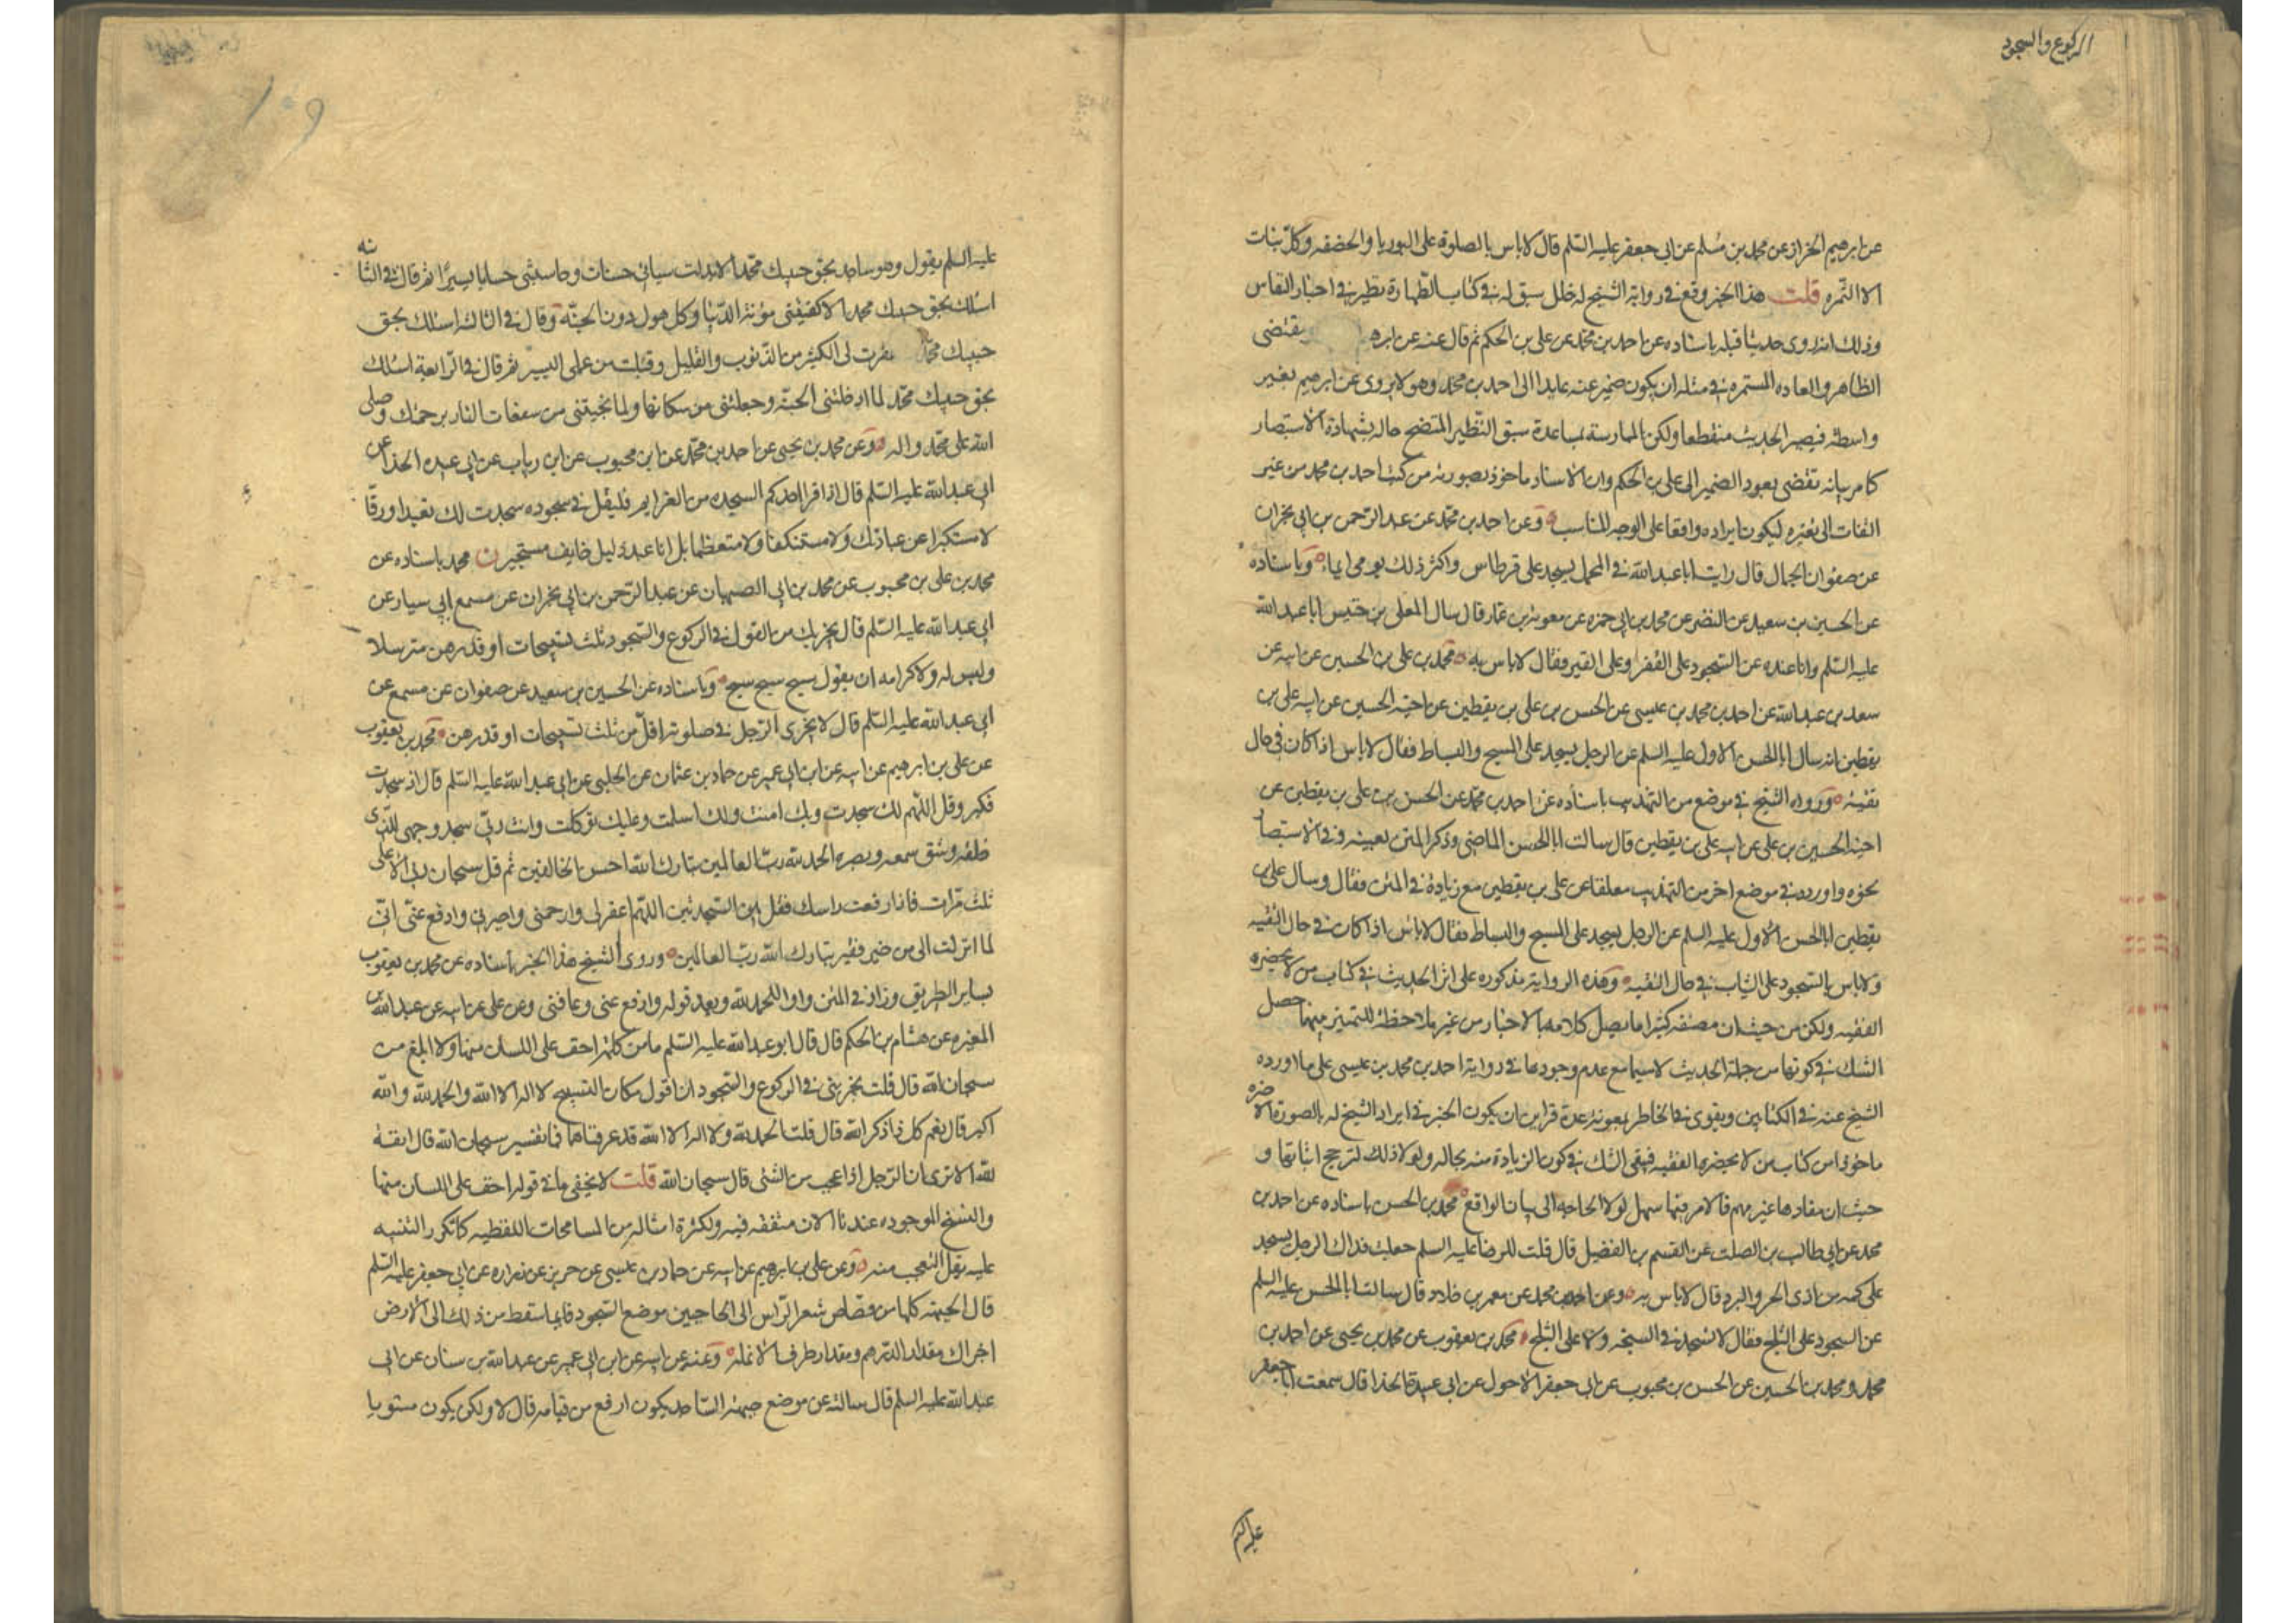 الركوع والسجود
عن ابرهيم الخزاز عن محمد بن مسلم عن ابي جعفر عليه السّلم قال لا باس بالصلوة على البوريا والخصفه وكلّ نبات
الا الثمره قلت هذا الخبر وقع في رواية الشيخ له خلل سبق له في كتاب الطهارة نظير في اخبار النفاس
وذلك انه روى حديثا قبله باسناده عن احمد بن محمد عن علي بن الحكم ثم قال عنه عن ابره يقتضى
الظاهر والعاده المستمره في مثله ان يكون ضمير عنه عايدا الى احمد بن محمد وهو لا يروى عن ابرهيم بغير
واسطة فيصير الحديث منقطعا ولكن الممارسة بمساعدة سبق النظير المتضح حاله بشهادة الاستبصار
كا مر بيانه تقضى بعود الضمير الى علي بن الحكم وان الاسناد ماخوذ بصورته من كتب احمد بن محمد من غير
التفات الى تغيره ليكون ايراده واقعا على الوجه المناسب وعن احمد بن محمد عن عبد الرحمن بن ابي نجران
عن صفوان الجمال قال رايت ابا عبد الله في المحمل يسجد على قرطاس واكثر ذلك يومى ايماء وباسناده
عن الحسين بن سعيد عن النضر عن محمد بن ابي حمزه عن معوية بن عمار قال سال المعلى بن خنيس ابا عبد الله
عليه السّلم وانا عنده عن السّجود على القفر وعلى القير فقال لا باس به محمد بن علي بن الحسين عن ابيه عن
سعد بن عبد الله عن احمد بن محمد بن عيسى عن الحسن بن علي بن يقطين عن اخيه الحسين عن ابيه علي بن
يقطين انه سال ابا الحسن الاول عليه السلم عن الرجل يسجد على المسح والبساط فقال لا باس اذا كان في حال
تقية ورواه الشيخ في موضع من التهذيب باسناده عن احمد بن محمد عن الحسن بن علي بن يقطين عن
اخيه الحسين بن علي عن ابيه علي بن يقطين قال سالت ابا الحسن الماضي وذكر المتن بعينه وفي الاستبصا
نحوه واورده في موضع اخر من التهذيب معلقا عن علي بن يقطين مع زيادة في المتن فقال وسال علي بن
يقطين ابا الحسن الاول عليه السلم عن الرجل يسجد على المسح والبساط فقال لا باس اذا كان في حال التقيه
ولا باس بالسّجود على الثياب في حال التقيه وهذه الرواية مذكوره على اثر الحديث في كتاب من لا يحضره
الفقيه ولكن من حيث ان مصنفه كثيرا ما يصل كلامه بالاخبار من غير ملاحظة للتميز بينهما حصل
الشك في كونها من جملة الحديث لا سيما مع عدم وجودها في رواية احمد بن محمد بن عيسى على ما اورده
الشيخ عنه في الكتابين ويقوى في الخاطر بمعونة عدة قراين ان يكون الخبر في ايراد الشيخ له بالصورة الا خره
ماخوذا من كتاب من لا يحضره الفقيه فيبقى الشك في كون الزيادة منه بحاله ولو لا ذلك لترجح اثباتها و
حيث ان مفادها غير مهم فالامر فيها سهل لولا الحاجه الى بيان الواقع محمد بن الحسن باسناده عن احمد بن
محمد عن ابي طالب بن الصلت عن القسم بن الفضيل قال قلت للرضا عليه السلم جعلت فداك الرجل يسجد
على كمه من اذى الحر والبرد قال لا باس به وعن احمد بن محمد عن معمر بن خلاد قال سالت ابا الحسن عليه السلم
عن السجود على الثلج فقال لا تسجد في السبخه ولا على الثلج محمد بن يعقوب عن محمد بن يحيى عن احمد بن
محمد ومحمد بن الحسين عن الحسن بن محبوب عن ابي جعفر الاحول عن ابي عبيدة الحذا قال سمعت ابا جعفر
عليه السلم
١٠٩
عليه السلم يقول وهو ساجد بحق حبيبك محمد الا بدلت سياتي حسنات وحاسبتني حسابا يسيرا ثم قال في الثا نيه
اسئلك بحق حبيبك محمد الا كفيتني مؤنة الدّنيا وكل هول دون الجنّة وقال في الثالثه اسئلك بحق
حبيبك محمّد غفرت لى الكثير من الذّنوب والقليل وقبلت من عملى اليسير ثم قال في الرّابعة اسئلك
بحق حبيبك محمّد لما ادخلتني الجنّة وجعلتني من سكانها ولما نجيتنى من سفعات النار برحمتك وصلى
الله على محمّد واله وعن محمد بن يحيى عن احمد بن محمّد عن ابن محبوب عن ابن رياب عن ابي عبيده الحذا عن
ابي عبد الله عليه السّلم قال اذا قرا احدكم السجده من العزايم فليقل في سجوده سجدت لك تعبدا ورقّا
لا مستكبرا عن عبادتك ولا مستنكفا ولا متعظما بل انا عبد ذليل خايف مستجير ن محمد باسناده عن
محمد بن علي بن محبوب عن محمد بن ابي الصهبان عن عبد الرّحمن بن ابي نجران عن مسمع ابي سيار عن
ابي عبد الله عليه السّلم قال يجزيك من القول في الركوع والسّجود ثلث تسبيحات او قدرهن مترسلا
وليس له ولا كرامه ان يقول سبح سبح سبح وباسناده عن الحسين بن سعيد عن صفوان عن مسمع عن
ابي عبد الله عليه السّلم قال لا يجزى الرّجل في صلوته اقلّ من ثلث تسبيحات او قدرهن محمد بن يعقوب
عن علي بن ابرهيم عن ابيه عن ابن ابي عمير عن حماد بن عثمان عن الحلبي عن ابي عبد الله عليه السّلم قال اذ سجدت
فكبر وقل اللّهم لك سجدت وبك امنت ولك اسلمت وعليك توكلت وانت ربّي سجد وجهى للّذى
خلقه وشق سمعه وبصره الحمد لله ربّ العالمين تبارك الله احسن الخالقين ثم قل سبحان ربي الاعلى
ثلث مّرات فاذا رفعت راسك فقل بين السّجدتين اللّهمّ اغفر لى وارحمنى واجرنى وادفع عنّى انّى
لما انزلت الى من خير فقير تبارك الله ربّ العالمين وروى الشيخ هذا الخبر باسناده عن محمد بن يعقوب
بساير الطريق وزاد في المتن واوا للحمد لله وبعد قوله وادفع عنى وعافنى وعن علي عن ابيه عن عبد الله بن
المغيره عن هشام بن الحكم قال قال ابو عبد الله عليه السّلم ما من كلمة اخف على اللسان منها ولا ابلغ من
سبحان الله قال قلت يجزينى في الركوع والسّجود ان اقول مكان التسبيح لا اله الا الله والحمد لله والله
اكبر قال نعم كل ذا ذكر الله قال قلت الحمد لله ولا اله الا الله قد عرفناهما فما تفسير سبحان الله قال انفة
للّه الا ترى ان الرّجل اذا عجب من الشئى قال سبحان الله قلت لا يخفى ما في قوله اخف على اللسان منها
والنسخ الموجوده عندنا الان متفقه فيه ولكثرة امثاله من المسامحات اللفظيه كا تكرر التنبيه
عليه يقل التعجب منه وعن علي بن ابرهيم عن ابيه عن حماد بن عيسى عن حريز عن زراره عن ابي جعفر عليه السّلم
قال الجبهة كلها من قصاص شعر الرّاس الى الحاجبين موضع السّجود فايما سقط من ذلك الى الارض
اجزاك مقدار الدّرهم ومقدار طرف الانملة وعنه عن ابيه عن ابن ابي عمير عن عبد الله بن سنان عن ابي
عبد الله عليه السلم قال سالته عن موضع جبهة السّاجد يكون ارفع من قيامه قال لا ولكن يكون مستويا